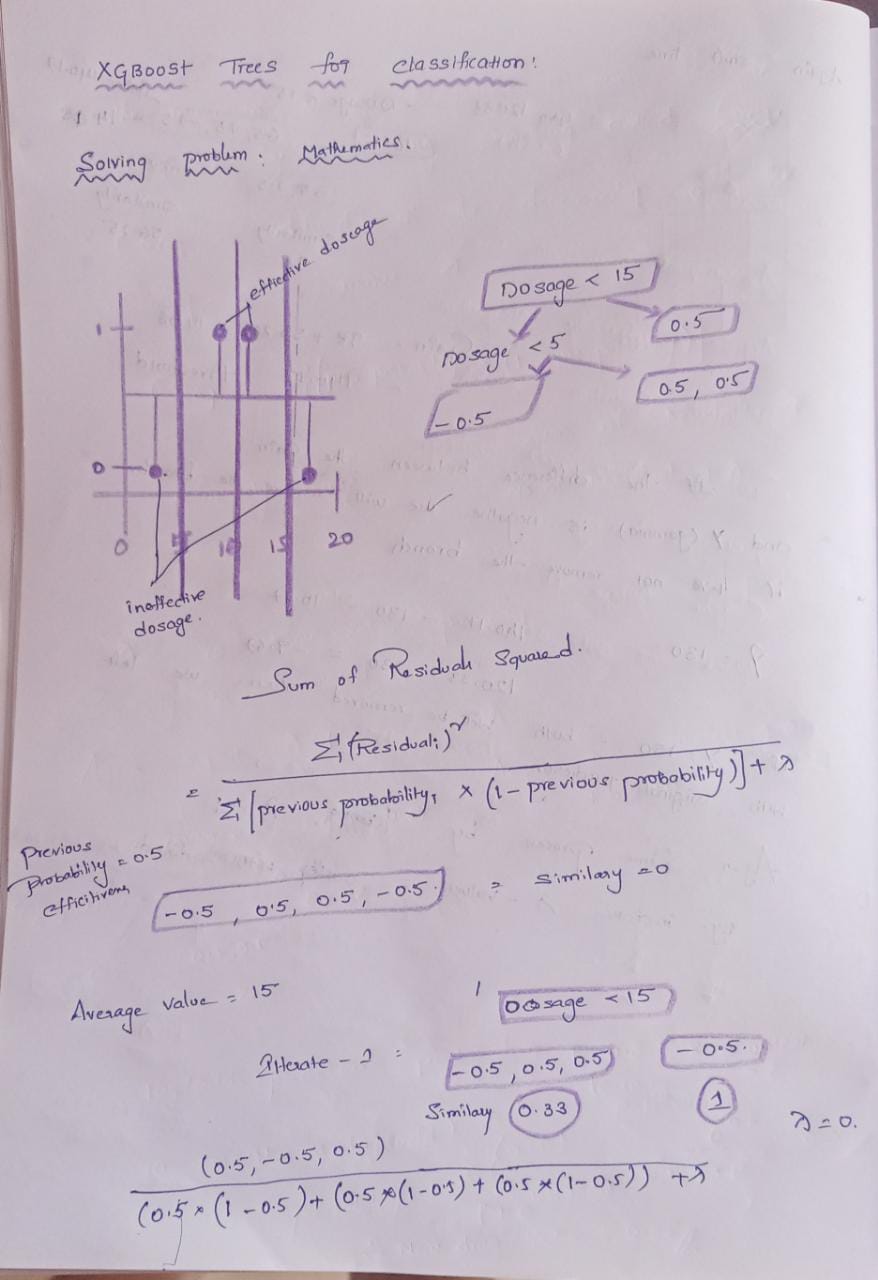 XGBoost Trees for classification:
Solving problem: Mathematics.
effective doscage
1
0
0 5 10 15 20
ineffective
dosage.
Dosage < 15
0.5
Dosage < 5
-0.5
0.5, 0.5
Sum of Residuals Squared.
= Σ(Residuali)²
Σ[previous probabilityi × (1 - previous probability)] + λ
Previous
Probability = 0.5
-0.5, 0.5, 0.5, -0.5 = Similary = 0
Average value = 15
Dosage < 15
Iterate - 1 = -0.5, 0.5, 0.5 -0.5.
Similary 0.33 1 λ = 0.
(0.5, -0.5, 0.5)
(0.5 × (1 - 0.5) + (0.5 × (1 - 0.5) + (0.5 × (1 - 0.5)) + λ